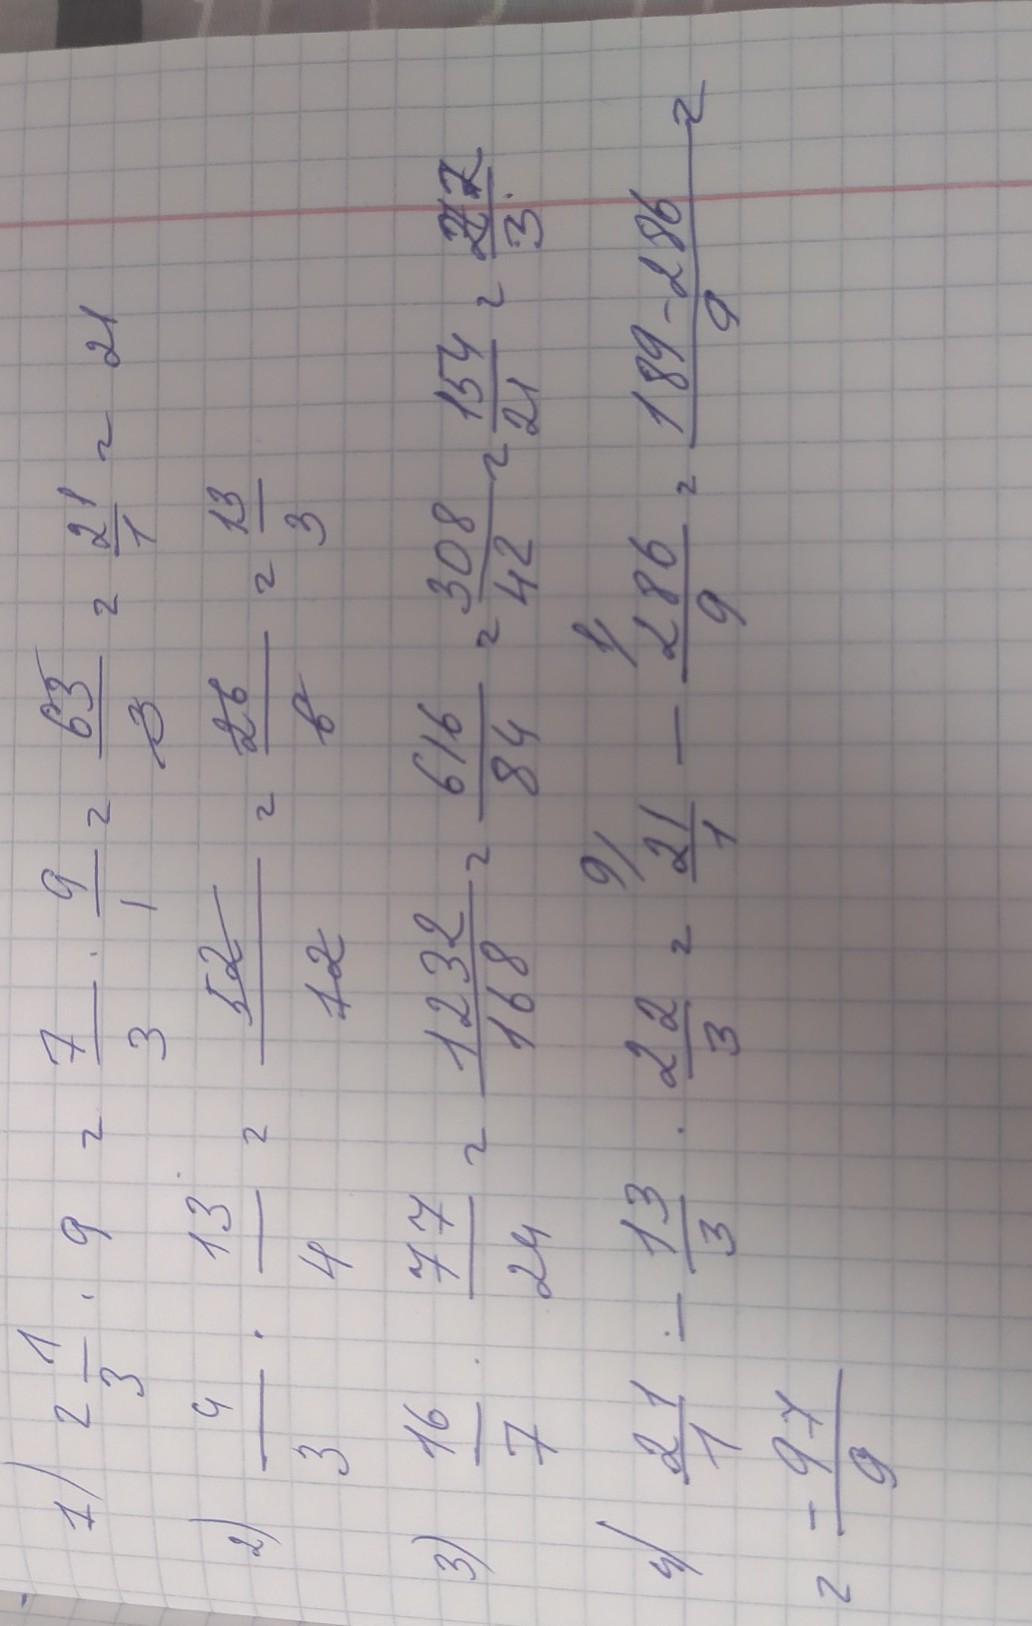 1) 2 1/3 · 9 = 7/3 · 9/1 = 63/3 = 21/1 = 21
2) 4/3 · 13/4 = 52/12 = 26/6 = 13/3
3) 16/7 · 77/24 = 1232/168 = 616/84 = 308/42 = 154/21 = 22/3
4) 21/1 - 13/3 · 22/3 = 9) 21/1 - 1) 286/9 = 189-286/9 =
= - 97/9